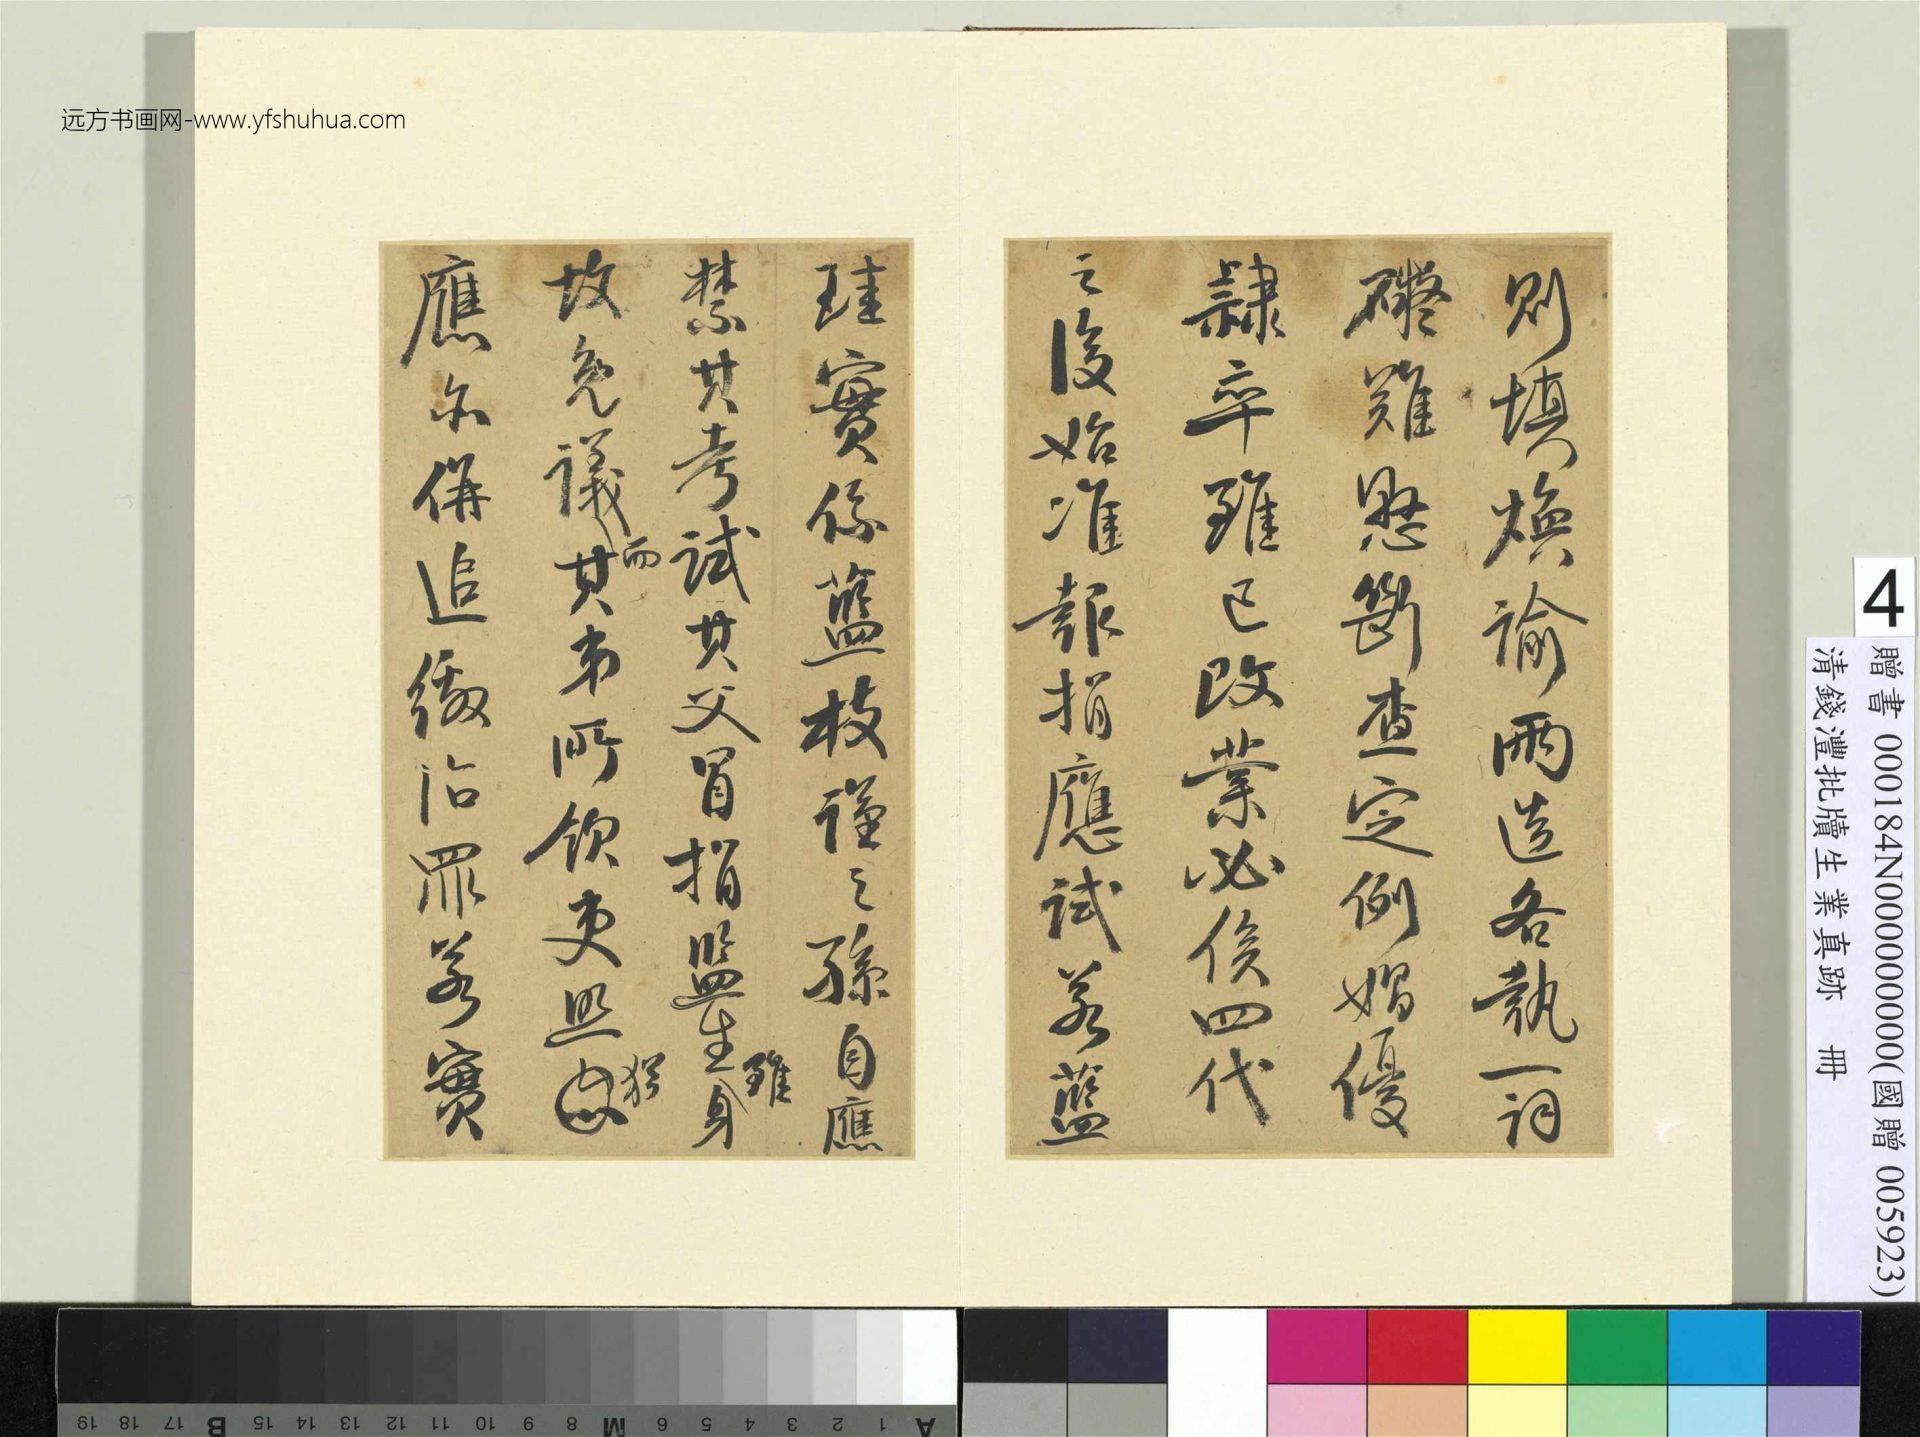 远方书画网-www.yfshuhua.com
則填煥諭兩造各執一詞
礙難懸斷查定例娼優
隸卒雖已改業必俟四代
之後始准報捐應試若藍
珪實係藍枝謹之孫自應
禁其考試其父冒捐監生身雖
故免議而其弟所飲吏照猶
應尓併追繳治罪若實
4
贈書 000184N000000000(國贈 005923)
清錢灃批牘生業真跡 冊
A 1 2 3 4 5 6 M 8 9 10 11 12 13 14 15 B 17 18 19